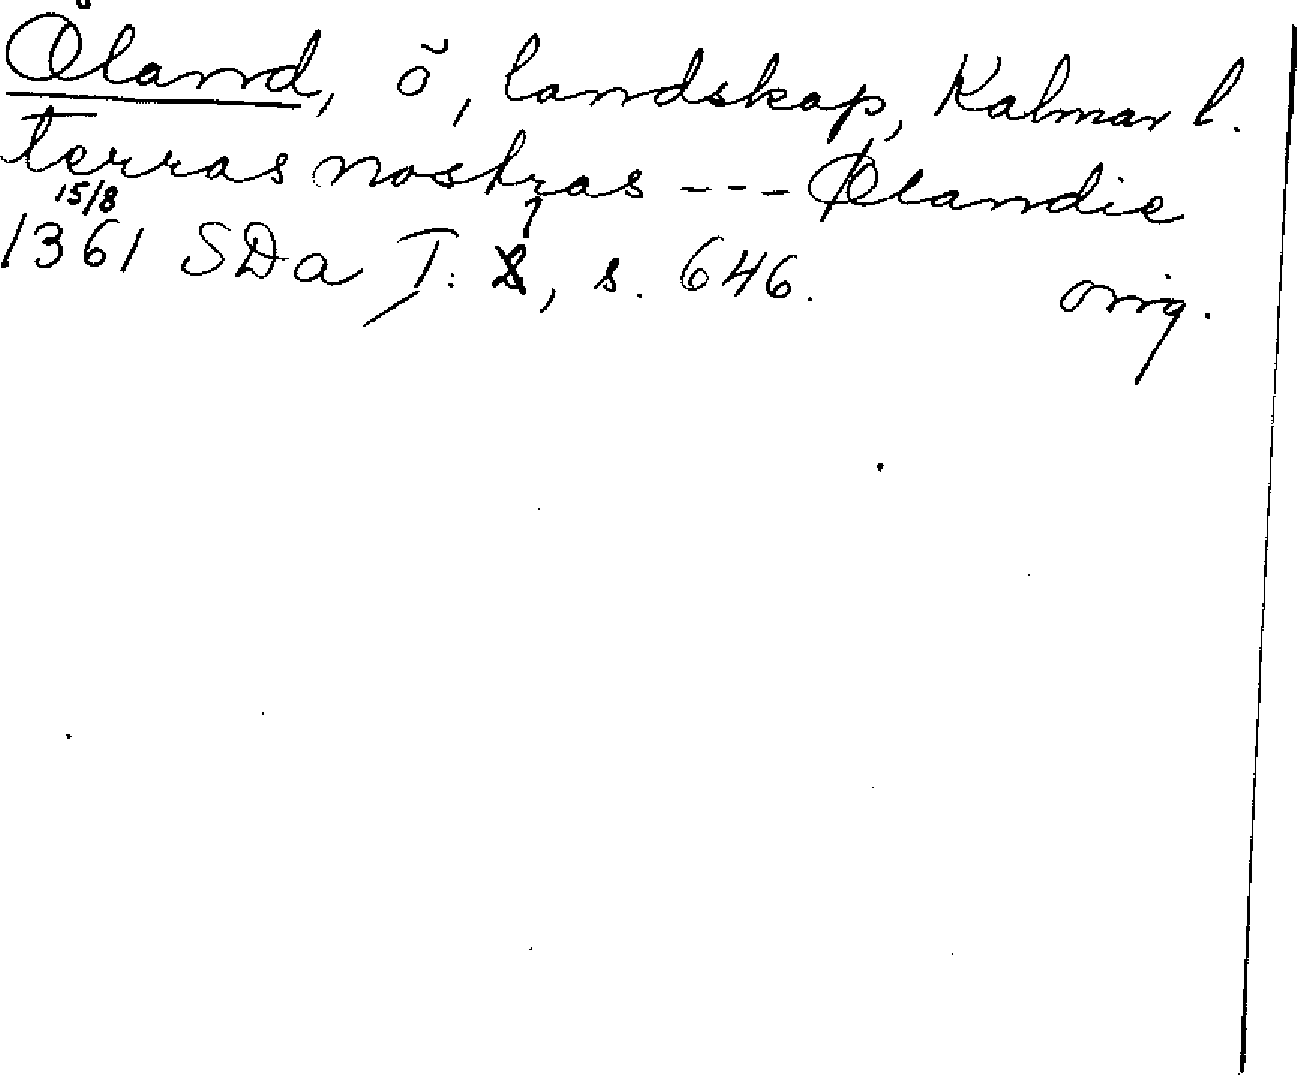 Öland, ö, landskap, Kalmar l.
terras nostras --- Ølandie
15/8
1361 SDa J: 1, s. 646. orig.